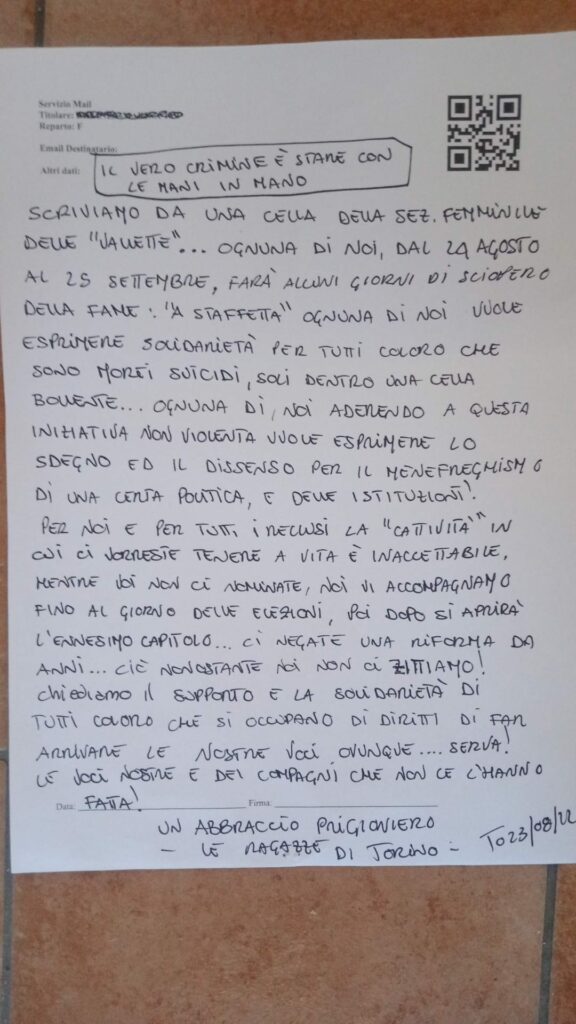 Servizio Mail
Titolare:
Reparto: F
Email Destinatario:
Altri dati:
IL VERO CRIMINE È STARE CON
LE MANI IN MANO
SCRIVIAMO DA UNA CELLA DELLA SEZ. FEMMINILE
DELLE "VALLETTE"... OGNUNA DI NOI, DAL 24 AGOSTO
AL 25 SETTEMBRE, FARÀ ALCUNI GIORNI DI SCIOPERO
DELLA FAME: "A STAFFETTA" OGNUNA DI NOI VUOLE
ESPRIMERE SOLIDARIETÀ PER TUTTI COLORO CHE
SONO MORTI SUICIDI, SOLI DENTRO UNA CELLA
BOLLENTE... OGNUNA DI, NOI ADERENDO A QUESTA
INIZIATIVA NON VIOLENTA VUOLE ESPRIMERE LO
SDEGNO ED IL DISSENSO PER IL MENEFREGHISMO
DI UNA CERTA POLITICA, E DELLE ISTITUZIONI!
PER NOI E PER TUTTI I RECLUSI LA "CATTIVITÀ" IN
CUI CI VORRESTE TENERE A VITA È INACCETTABILE,
MENTRE VOI NON CI NOMINATE, NOI VI ACCOMPAGNAMO
FINO AL GIORNO DELLE ELEZIONI, POI DOPO SI APRIRÀ
L'ENNESIMO CAPITOLO... CI NEGATE UNA RIFORMA DA
ANNI... CIÈ NONOSTANTE NOI NON CI ZITTIAMO!
CHIEDIAMO IL SUPPORTO E LA SOLIDARIETÀ DI
TUTTI COLORO CHE SI OCCUPANO DI DIRITTI DI FAR
ARRIVARE LE NOSTRE VOCI OVUNQUE.... SERVA!
LE VOCI NOSTRE E DEI COMPAGNI CHE NON CE L'HANNO
Data: FATTA! Firma:
UN ABBRACCIO PRIGIONIERO
- LE RAGAZZE DI TORINO - TO 23/08/22